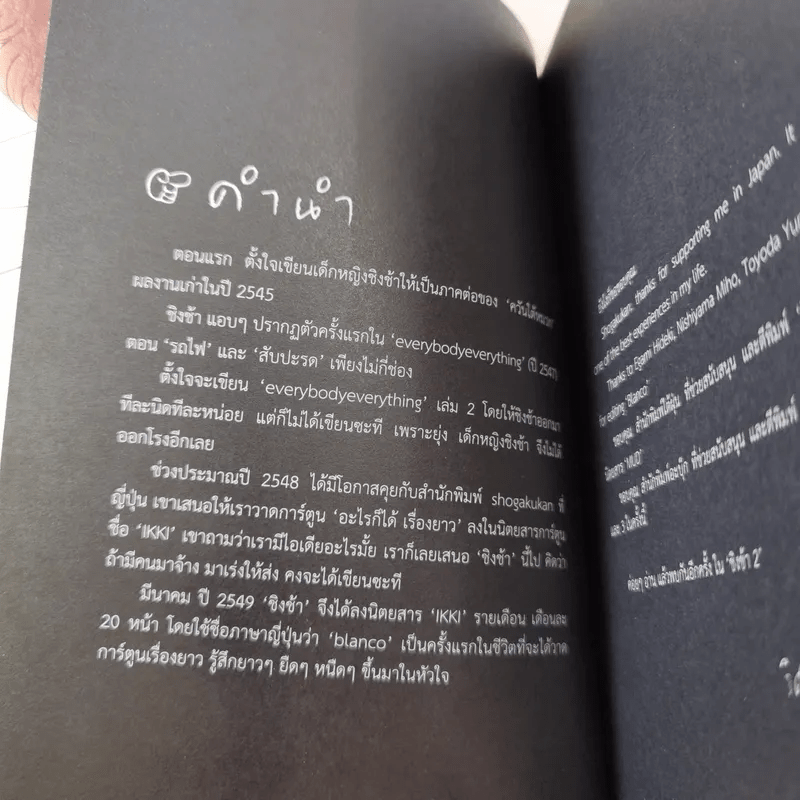 คำนำ
ตอนแรก ตั้งใจเขียนเด็กหญิงชิงช้าให้เป็นภาคต่อของ 'ควันใต้หมวก'
ผลงานเก่าในปี 2545
ชิงช้า แอบๆ ปรากฏตัวครั้งแรกใน 'everybodyeverything' (ปี 2547)
ตอน 'รถไฟ' และ 'สับปะรด' เพียงไม่กี่ช่อง
ตั้งใจจะเขียน 'everybodyeverything' เล่ม 2 โดยให้ชิงช้าออกมา
ทีละนิดทีละหน่อย แต่ก็ไม่ได้เขียนซะที เพราะยุ่ง เด็กหญิงชิงช้า จึงไม่ได้
ออกโรงอีกเลย
ช่วงประมาณปี 2548 ได้มีโอกาสคุยกับสำนักพิมพ์ shogakukan ที่
ญี่ปุ่น เขาเสนอให้เราวาดการ์ตูน 'อะไรก็ได้ เรื่องยาว' ลงในนิตยสารการ์ตูน
ชื่อ 'IKKI' เขาถามว่าเรามีไอเดียอะไรมั้ย เราก็เลยเสนอ 'ชิงช้า' นี้ไป คิดว่า
ถ้ามีคนมาจ้าง มาเร่งให้ส่ง คงจะได้เขียนซะที
มีนาคม ปี 2549 'ชิงช้า' จึงได้ลงนิตยสาร 'IKKI' รายเดือน เดือนละ
20 หน้า โดยใช้ชื่อภาษาญี่ปุ่นว่า 'blanco' เป็นครั้งแรกในชีวิตที่จะได้วาด
การ์ตูนเรื่องยาว รู้สึกยาวๆ ยืดๆ หนืดๆ ขึ้นมาในหัวใจ
Shogakukan, thanks for supporting me in Japan. It
one of the best experiences in my life.
Thanks to Egami Hideki, Nishiyama Miho, Toyoda
For editing 'Blanco'
ขอบคุณ สำนักพิมพ์ไต้ฝุ่น ที่ช่วยสนับสนุน และตีพิมพ์
นิตยสาร 'MUD'
ขอบคุณ สำนักพิมพ์อะบุ๊ก ที่ช่วยสนับสนุน และตีพิมพ์
และ 3 ในครั้งนี้
ค่อยๆ อ่าน แล้วพบกันอีกครั้ง ใน 'ชิงช้า 2'